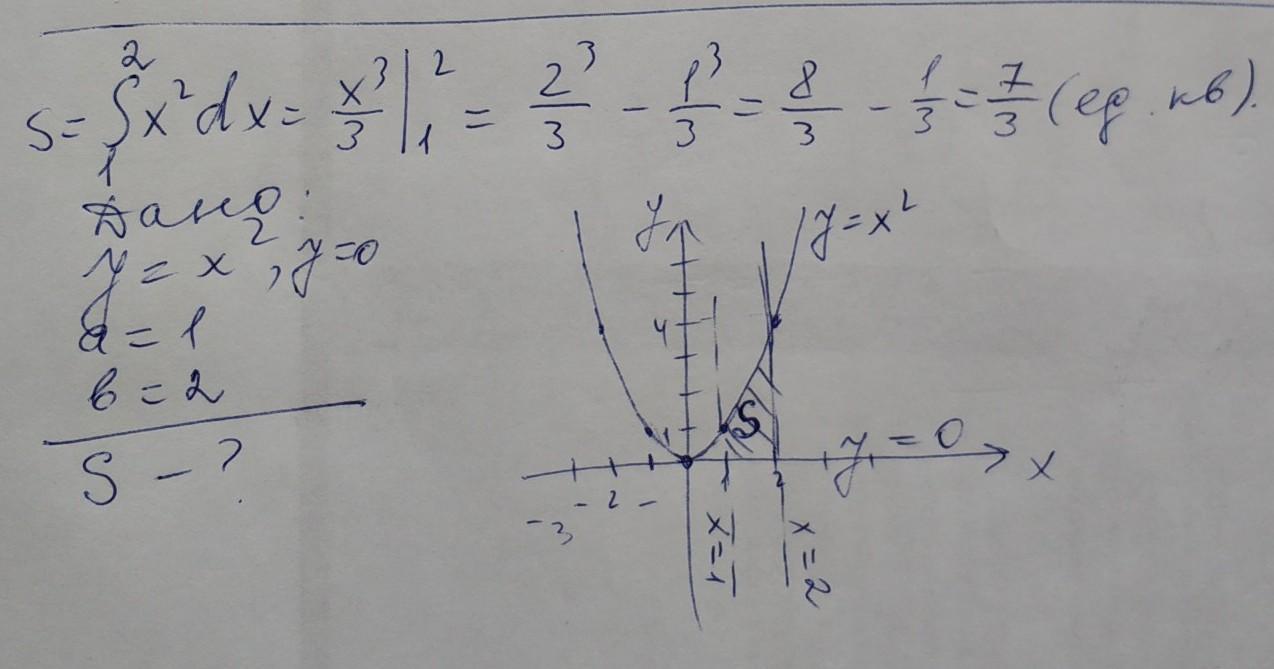 S = ∫₁² x² dx = x³/3 |₁² = 2³/3 - 1³/3 = 8/3 - 1/3 = 7/3 (ед. кв).
Дано:
y = x², y=0
a = 1
b = 2
S - ?
y
y = x²
4
1
S
y = 0
x
-3 -2 -
1 2
x=1
x=2